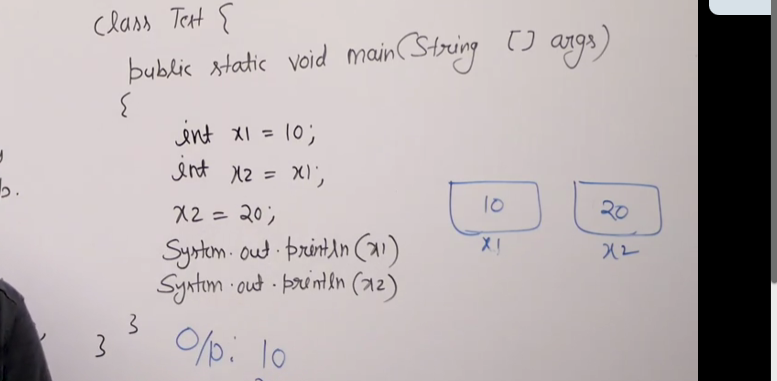 class Test {
public static void main(String [] args)
{
int x1 = 10;
int x2 = x1;
x2 = 20;
System.out.println(x1)
System.out.println(x2)
}
}
O/p: 10
10
x1
20
x2